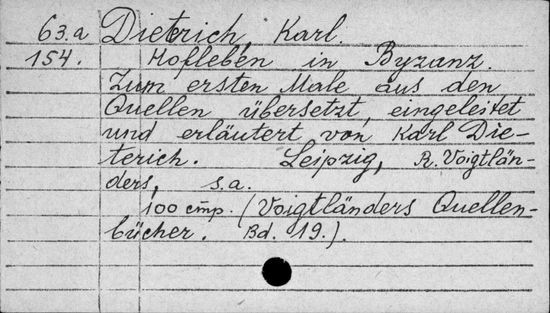 63.a Dieterich, Karl.
154. Hofleben in Byzanz.
Zum ersten Male aus den
Quellen übersetzt, eingeleitet
und erläutert von Karl Die-
terich. Leipzig, R. Voigtlän-
ders, s.a.
100 стр. (Voigtländers Quellen-
bücher. Bd. 19.).